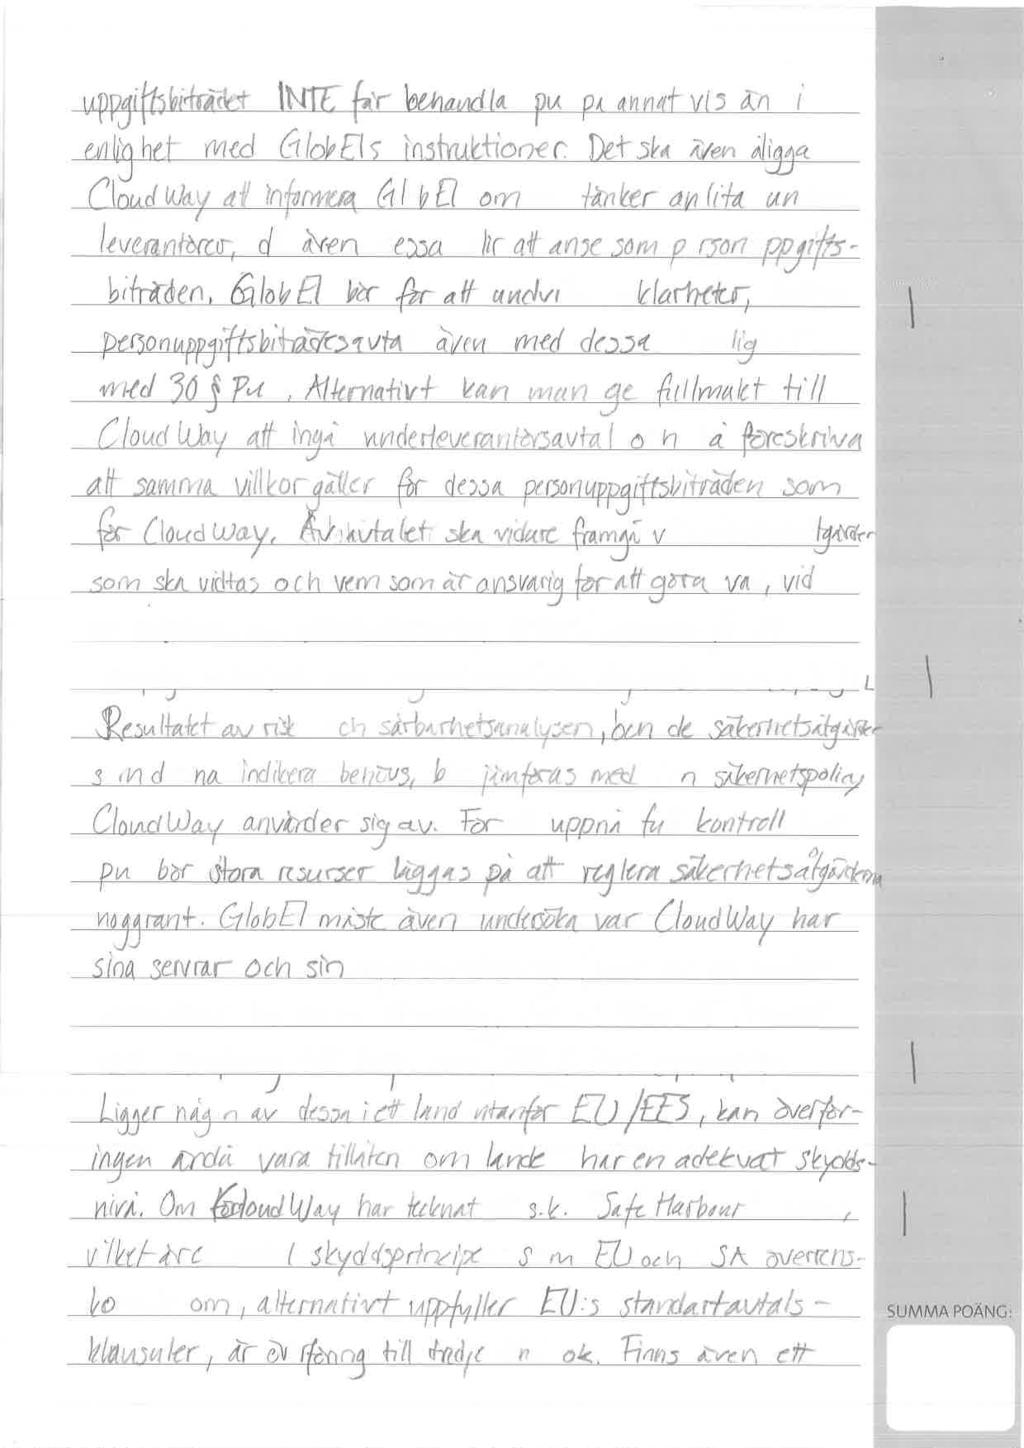 uppgiftsbiträdet INTE får behandla pu på annat vis än i
enlighet med GlobEls instruktioner. Det ska även åligga
CloudWay att informera Gl bEl om tänker anlita un
leverantörer, d även essa lir att anse som p rson ppgifts-
biträden. GlobEl bör för att undvi klarheter,
personuppgiftsbiträdesavta även med dessa lig
med 30 § Pu , Alternativt kan man ge fullmakt till
CloudWay att ingå underleverantörsavtal o h å föreskriva
att samma villkor gäller för dessa personuppgiftsbiträden som
för CloudWay. Av avtalet ska vidare framgå v tgärder
som ska vidtas och vem som är ansvarig för att göra va , vid
Resultatet av risk ch sårbarhetsanalysen, och de säkerhetsåtgärder
s m d na indikera behövs, b jämföras med n säkerhetspolicy
CloudWay använder sig av. För uppnå fu kontroll
pu bör stora resurser läggas på att reglera säkerhetsåtgärderna
noggrant. GlobEl måste även undersöka var CloudWay har
sina servrar och sin
Ligger någ n av dessa i ett land utanför EU/EES, kan överför-
ingen ändå vara tillåten om lande har en adekvat skydds-
nivå. Om CloudWay har tecknat s.k. Safe Harbour ,
vilket är e l skyddsprincipe s m EU och SA överens-
ko om, alternativt uppfyller EU:s standartavtals-
klausuler, är öv rföring till tredje n ok. Finns även ett
SUMMA POÄNG: